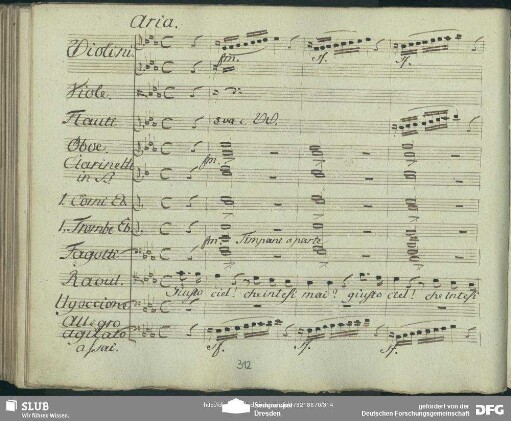 Aria.
Violini.
fm. sf. sf.
Viole.
Flauti
8va c. VV.
Oboe.
Clarinetti
in B
fm.
1. Corni Eb.
1. Trombe Eb.
fm. Timpani a parte
Fagotti
Raoul.
Giusto ciel! che intesi mai? giusto ciel! che intesi
Ugoccione
Allegro
agitato
assai.
sf. sf. sf.
312
SLUB
Wir führen Wissen.
Dresden
gefördert von der
Deutschen Forschungsgemeinschaft
DFG